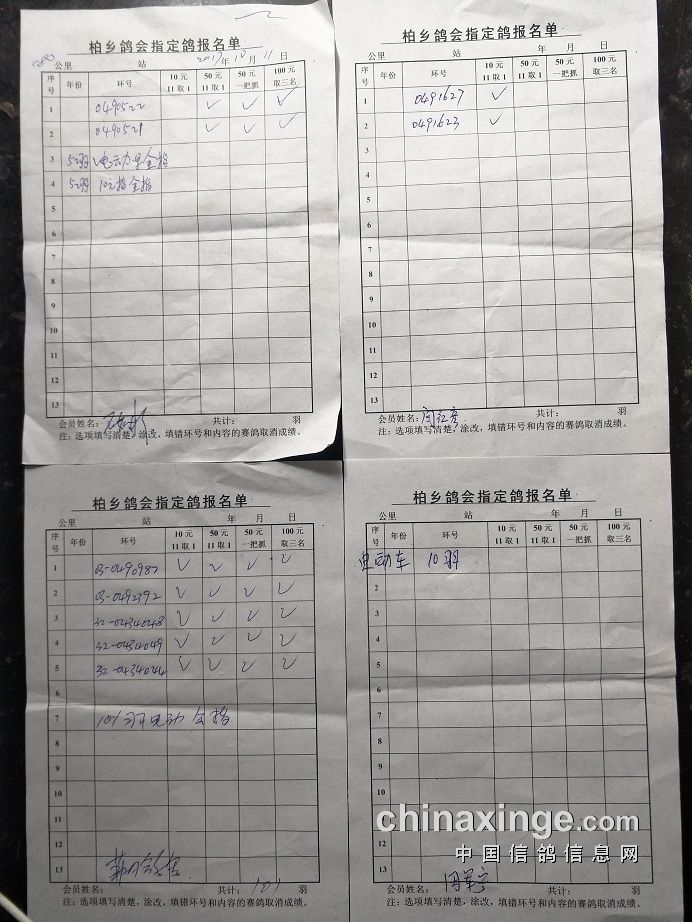 柏乡鸽会指定鸽报名单
公里 站 2017年10月11日
序号 年份 环号 10元 11取1 50元 11取1 50元 一把抓 100元 取三名
1 0490522 ✓ ✓ ✓
2 0490521 ✓ ✓ ✓
3 5羽 电动车全指
4 5羽 10元指全指
5
6
7
8
9
10
11
12
13
会员姓名: 共计: 羽
注:选项填写清楚,涂改,填错环号和内容的赛鸽取消成绩。
柏乡鸽会指定鸽报名单
公里 站 年 月 日
序号 年份 环号 10元 11取1 50元 11取1 50元 一把抓 100元 取三名
1 0491627 ✓
2 0491623 ✓
3
4
5
6
7
8
9
10
11
12
13
会员姓名: 闫红彦 共计: 羽
注:选项填写清楚,涂改,填错环号和内容的赛鸽取消成绩。
柏乡鸽会指定鸽报名单
公里 站 年 月 日
序号 年份 环号 10元 11取1 50元 11取1 50元 一把抓 100元 取三名
1 03-0490987 ✓ ✓ ✓ ✓
2 03-0492392 ✓ ✓ ✓ ✓
3 32-0434048 ✓ ✓ ✓ ✓
4 32-0434049 ✓ ✓ ✓ ✓
5 32-0434044 ✓ ✓ ✓ ✓
6
7 101羽电动 全指
8
9
10
11
12
13
会员姓名: 共计: 101 羽
注:选项填写清楚,涂改,填错环号和内容的赛鸽取消成绩。
柏乡鸽会指定鸽报名单
公里 站 年 月 日
序号 年份 环号 10元 11取1 50元 11取1 50元 一把抓 100元 取三名
电动车 10羽
2
3
4
5
6
7
8
9
10
11
12
13
会员姓名: 共计: 羽
注:选项填写清楚,涂改,填错环号和内容的赛鸽取消成绩。
chinaxinge.com
中国信鸽信息网